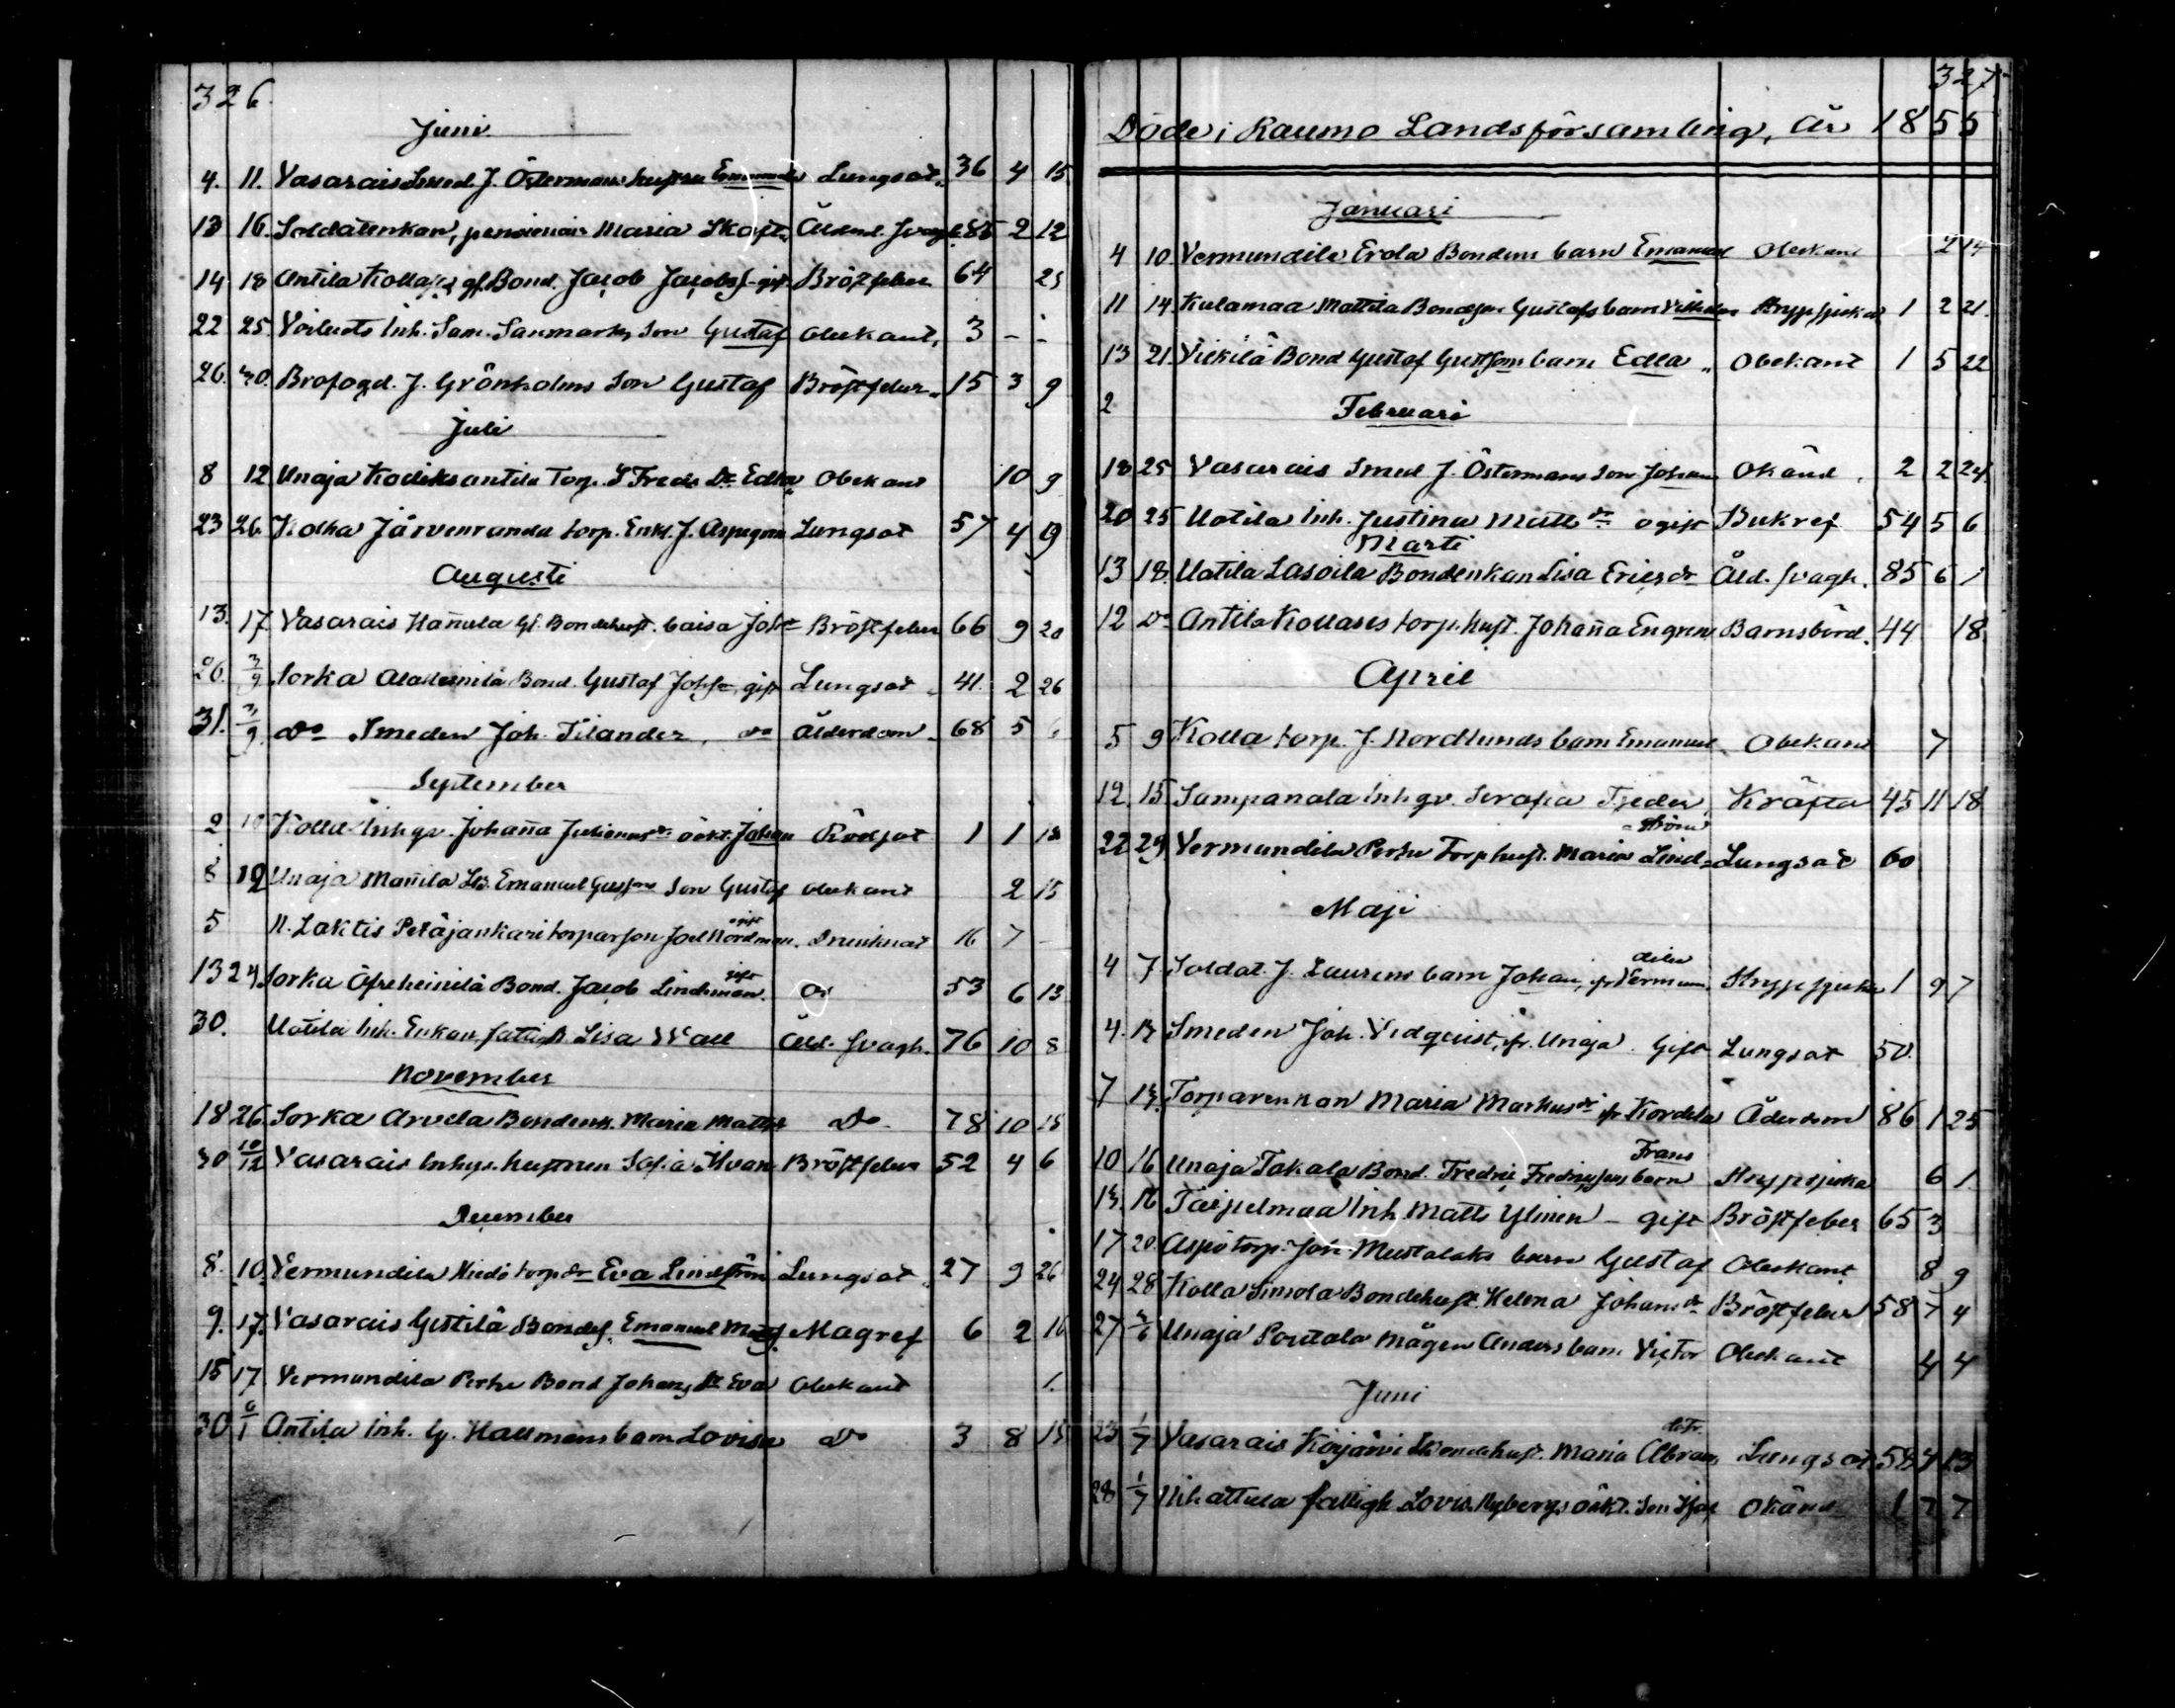 326.
Juni
4. 11. Vasarais Smed. J. Östermans hustru Lungsot. 36 4 15
13 16. Soldatenkan, Maria Skott. Ålderd. svagh. 85 2 12
14 18 Antila Kollas gf. Bond. Jacob Jacobs. gift. Bröstfeber 64 25
22 25. Voiluoto Inh. Sam. Sanmarks Son Gustaf obekant, 3 - -
26. 30. Brofogd. J. Grönholms Son Gustaf Bröstfeber 15 3 9
Juli
8 12 Unaja Kodiksantila Torp. Freds Dr Edla Obekant 10 9
23 26. Kolha Järvenranda torp. Enkl. J. Aspegren Lungsot 57 4 19
Augusti
13. 17. Vasarais Hannula Gf. Bondehust. Caisa Joh. dr Bröstfeber 66 9 20
26. 3/9 Sorka Alaheinilä Bond. Gustaf Johs. gift Lungsot 41. 2 26
31. /9. do Smeden Joh. Silander, do Ålderdom. 68 5 6
September
2 10 Kolla Inhqv. Johanna Julianus dr oäkt. Johan Rödsot 1 1 18
8 12 Unaja Mannila Emanuel Son Gustaf obekant 2 15
5 N. Laktis Petäjankari torparson Joel Nordman. ogift Drunknat 16 7 -
13 24 Sorka Öfreheinilä Bond. Jacob Lindeman. gift 53 6 13
30. Uotila Inh. Enkan, fattigh. Lisa Wall Åld. svagh. 76 10 8
November
18 26. Sorka Arvela Bondenk. Maria Matts do 78 10 15
30 10/12 Vasarais Inhys. hustrun Sofia Bröstfeber 52 4 6
December
8. 10. Vermundila Hiedo torp. dr Eva Lindström Lungsot 27 9 26
9. 17. Vasarais Gestilä Bondes. Emanuel Matts. Magref 6 2 16
15 17 Vermundila Perhe Bond Johans Dr Eva Obekant 1.
30 6/1 Antila Inh. G. Hallmans barn Lovisa do 3 8 15
327.
Döde i Raumo Landsförsamling, År 1855
Januari
4 10 Vermundila Erola Bondens barn Emanuel Obekant 2 14
11 14. Kulamaa Mattila Bondeson Gustafs barn Vilhelm Krypsjuka 1 2 21.
13 21. Viikilä Bond Gustaf Gustfsons barn Edla Obekant 1 5 22
2 Februari
18 25 Vasarais Smed J. Östermans Son Johan Okänd 2 2 24.
20 25 Uotila Inh. Justina Matts dr ogift Bukref 54 5 6
Marti
13 18. Uotila Lasoila Bondenkan Lisa Erics dr Åld. svagh. 85 6 1
12 do Antila Kollases torp. hust. Johanna Engren Barnsbörd. 44 18
April
5 9 Kolla torp. J. Nordlunds barn Emanuel Obekant 7
12. 15. Sampanala Inhqv. Serafia Kräfta 45 11 18
22 29. Vermundila Perhe Torp hust. Maria Lind-ström Lungsot 60
Maji
4 7 Soldat. J. Laurens barn Johan, fr Vermundila Krypsjuka 1 9 7
4. 13 Smeden Joh. Vidqvist, fr. Unaja. Gift Lungsot 50.
7 13. Torparenkan Maria Markus dr fr. Kordela Åderdom 86 1 25
10 16 Unaja Takala Bond. Fredric Fredricssons barn Frans Krypsjuka 6 1
13. 16 Taipelmaa Inh Matts Ylinen - gift Bröstfeber 65 3
17 20. Aspö torp. Joh. Mustalaks barn Gustaf Obekant 8 9
24 28 Kolla Simola Bondehust. Helena Johans dr Bröstfeber 58 7 4
27 /6 Unaja Poutala Mågen Anders barn Victor Obekant 4 4
Juni
23 1/7 Vasarais Korjärvi Bondehust. Maria Abram dotr. Lungsot 58 4 13
28 1/7 Nihattula fattigh Lovis. Nybergs oäkt. Son Okänd 1 7 7